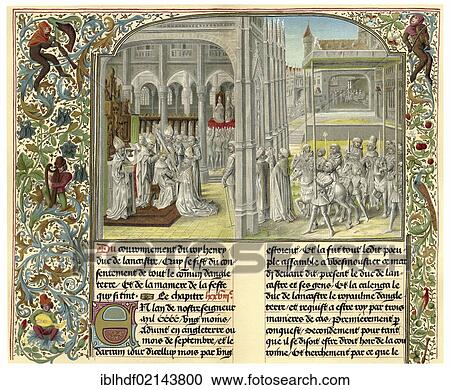 Du couronnement du roy henry
duc de lancastre. Et
sentement de tout le comun dangle
terre. Et de la maniere de la feste
qui fut Le chapitre
En lan de nostreseigneur
mil cccc. vng moins,
advint en angleterre ou
mois de septembre, et le
darrain iour dicelluy mois par vng
estorent. Et la fut tout ledit peu
ple assamble a wesmoustier ce mar
di devant dit present le duc de lan
castre et ses gens. Et la calenga le
duc de lancastre le royaulme dangle
terre, et requist a estre roy par trois
manieres de cas. Premierement p
conquest, secondement pour tant
que il se disoit estre droit hoir de la cou
ronne. Et tiercement par ce que le
iblhdf02143800 www.fotosearch.com